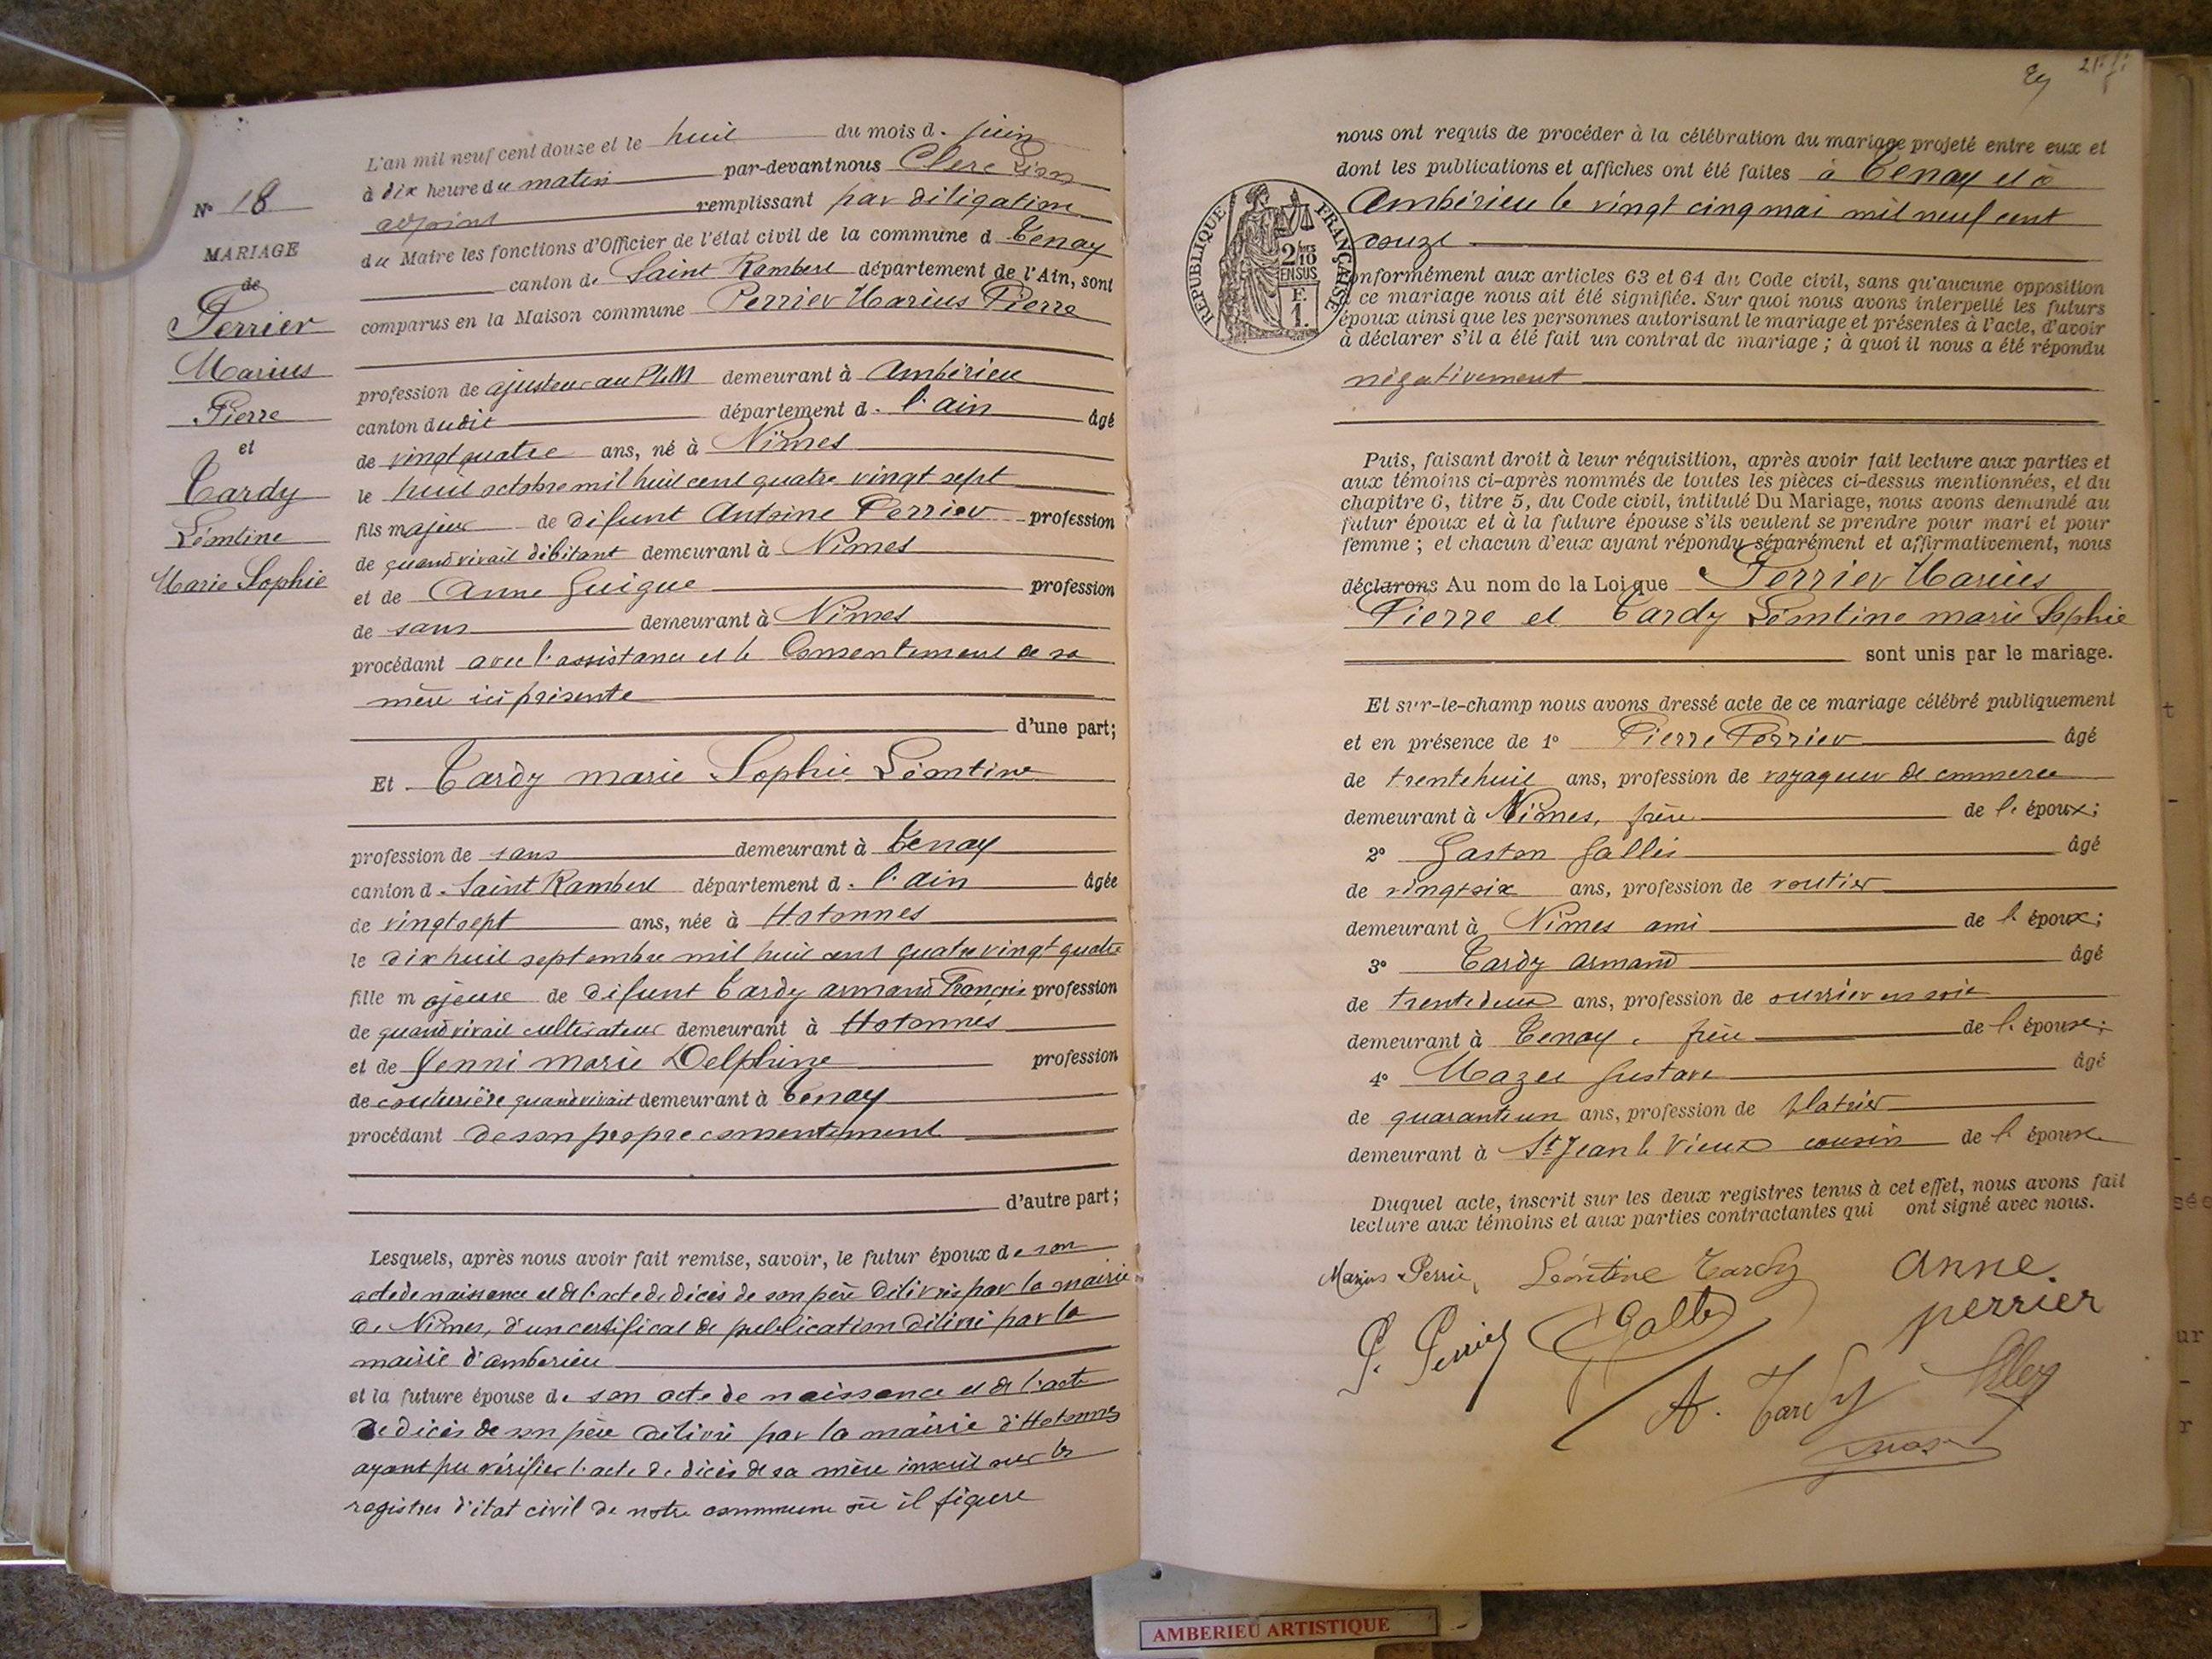 L'an mil neuf cent douze et le huit du mois d. juin
à dix heure du matin par-devant nous Clerc Léon
adjoint remplissant par délégation
du Maire les fonctions d'Officier de l'état civil de la commune d Tenay
canton de Saint Rambert département de l'Ain, sont
comparus en la Maison commune Perrier Marius Pierre
N° 18
MARIAGE
de
Perrier
Marius
Pierre
et
Tardy
Léontine
Marie Sophie
profession de ajusteur au PLM demeurant à Ambérieu
canton dudit département d. l'ain âgé
de vingt quatre ans, né à Nîmes
le huit octobre mil huit cent quatre vingt sept
fils majeur de défunt Antoine Perrier profession
de quand vivait débitant demeurant à Nîmes
et de Anne Guigue profession
de sans demeurant à Nîmes
procédant avec l'assistance et le Consentement de sa
mère ici présente
d'une part;
Et Tardy marie Sophie Léontine
profession de sans demeurant à Tenay
canton d. Saint Rambert département d. l'ain âgée
de vingt sept ans, née à Hotonnes
le dix huit septembre mil huit cent quatre vingt quatre
fille majeure de défunt Tardy armand François profession
de quand vivait cultivateur demeurant à Hotonnes
et de Jenni marie Delphine profession
de couturière quand vivait demeurant à Tenay
procédant de son propre consentement
d'autre part;
Lesquels, après nous avoir fait remise, savoir, le futur époux de son
acte de naissance et de l'acte de décès de son père délivrés par la mairie
de Nîmes, d'un certificat de publication délivré par la
mairie d'amberieu
et la future épouse de son acte de naissance et de l'acte
de décès de son père délivré par la mairie d'Hotonnes
ayant pu vérifier l'acte de décès de sa mère inscrit sur les
registres d'état civil de notre commune où il figure
nous ont requis de procéder à la célébration du mariage projeté entre eux et
dont les publications et affiches ont été faites à Tenay et à
Ambérieu le vingt cinq mai mil neuf cent
douze
conformément aux articles 63 et 64 du Code civil, sans qu'aucune opposition
à ce mariage nous ait été signifiée. Sur quoi nous avons interpellé les futurs
époux ainsi que les personnes autorisant le mariage et présentes à l'acte, d'avoir
à déclarer s'il a été fait un contrat de mariage ; à quoi il nous a été répondu
négativement
RÉPUBLIQUE FRANÇAISE
2/10
EN SUS
F.
1.
Puis, faisant droit à leur réquisition, après avoir fait lecture aux parties et
aux témoins ci-après nommés de toutes les pièces ci-dessus mentionnées, et du
chapitre 6, titre 5, du Code civil, intitulé Du Mariage, nous avons demandé au
futur époux et à la future épouse s'ils veulent se prendre pour mari et pour
femme ; et chacun d'eux ayant répondu séparément et affirmativement, nous
déclarons Au nom de la Loi que Perrier Marius
Pierre et Tardy Léontine marie Sophie
sont unis par le mariage.
Et sur-le-champ nous avons dressé acte de ce mariage célébré publiquement
et en présence de 1° Pierre Perrier âgé
de trente huit ans, profession de voyageur de commerce
demeurant à Nîmes, frère de l. époux;
2° Gaston Gallis âgé
de vingt six ans, profession de routier
demeurant à Nîmes ami de l. époux;
3° Tardy armand âgé
de trente deux ans, profession de ouvrier en soie
demeurant à Tenay, frère de l. épouse;
4° Mazer Gustave âgé
de quarante un ans, profession de platrier
demeurant à St Jean le Vieux cousin de l. épouse
Duquel acte, inscrit sur les deux registres tenus à cet effet, nous avons fait
lecture aux témoins et aux parties contractantes qui ont signé avec nous.
Marius Perrier Léontine Tardy Anne
perrier
P. Perrier
A. Tardy
AMBERIEU ARTISTIQUE